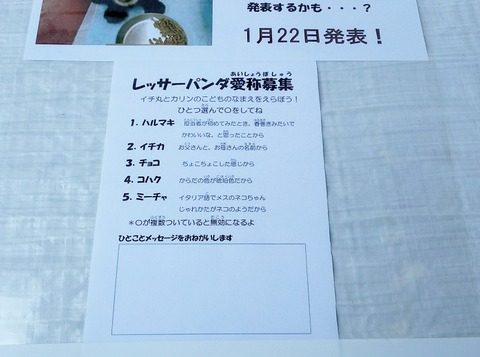 発表するかも・・・？
1月22日発表！
あいしょうぼしゅう
レッサーパンダ愛称募集
イチ丸とカリンのこどものなまえをえらぼう！
ひとつ選んで○をしてね
1. ハルマキ 担当者が初めてみたとき、春巻きみたいで
かわいいな、と思ったことから
2. イチカ お父さんと、お母さんの名前から
3. チョコ ちょこちょこした感じから
4. コハク からだの色が琥珀色だから
5. ミーチャ イタリア語でメスのネコちゃん
じゃれかたがネコのようだから
＊○が複数ついていると無効になるよ
ひとことメッセージをおねがいします